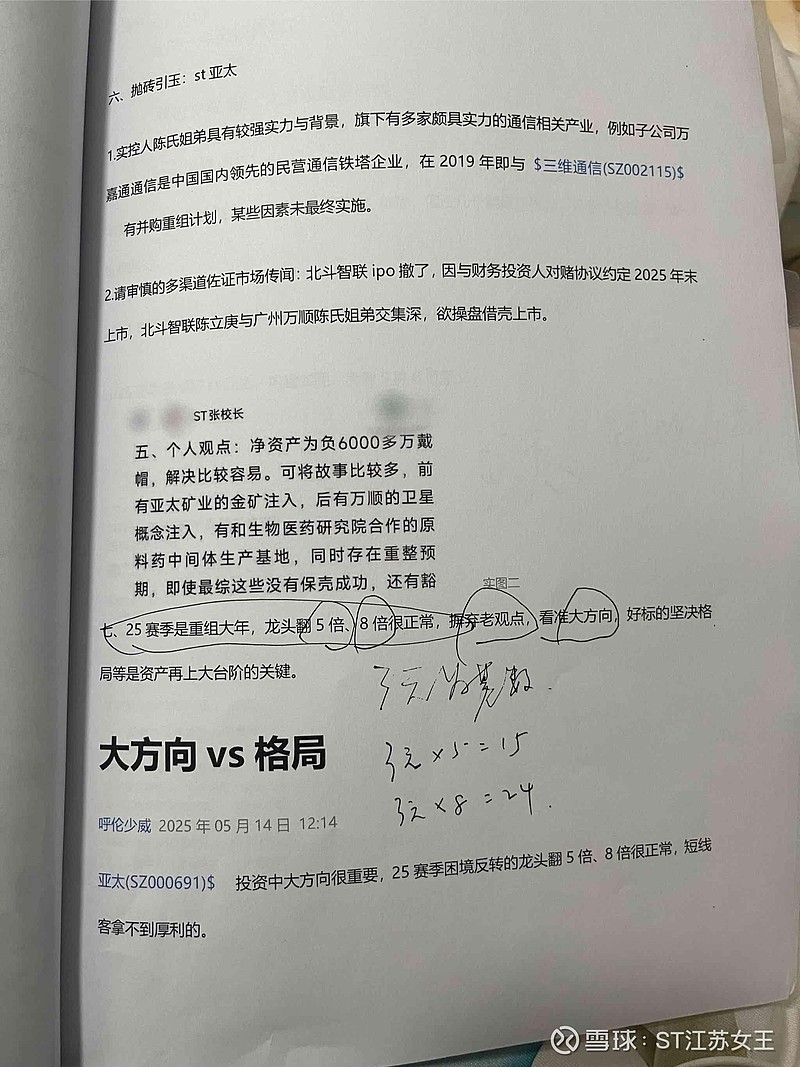 六、抛砖引玉：st 亚太
1.实控人陈氏姐弟具有较强实力与背景，旗下有多家颇具实力的通信相关产业，例如子公司万
嘉通通信是中国国内领先的民营通信铁塔企业，在 2019 年即与 $三维通信(SZ002115)$
有并购重组计划，某些因素未最终实施。
2.请审慎的多渠道佐证市场传闻：北斗智联 ipo 撤了，因与财务投资人对赌协议约定 2025 年末
上市，北斗智联陈立庚与广州万顺陈氏姐弟交集深，欲操盘借壳上市。
ST张校长
五、个人观点：净资产为负6000多万戴
帽，解决比较容易。可将故事比较多，前
有亚太矿业的金矿注入，后有万顺的卫星
概念注入，有和生物医药研究院合作的原
料药中间体生产基地，同时存在重整预
期，即使最综这些没有保壳成功，还有豁
实图二
七、25 赛季是重组大年，龙头翻 5 倍、8 倍很正常，摒弃老观点，看准大方向，好标的坚决格
局等是资产再上大台阶的关键。
3元为基数.
3元×5=15
3元×8=24.
大方向 vs 格局
呼伦少威 2025 年 05 月 14 日 12:14
亚太(SZ000691)$ 投资中大方向很重要，25 赛季困境反转的龙头翻 5 倍、8 倍很正常，短线
客拿不到厚利的。
雪球：ST江苏女王